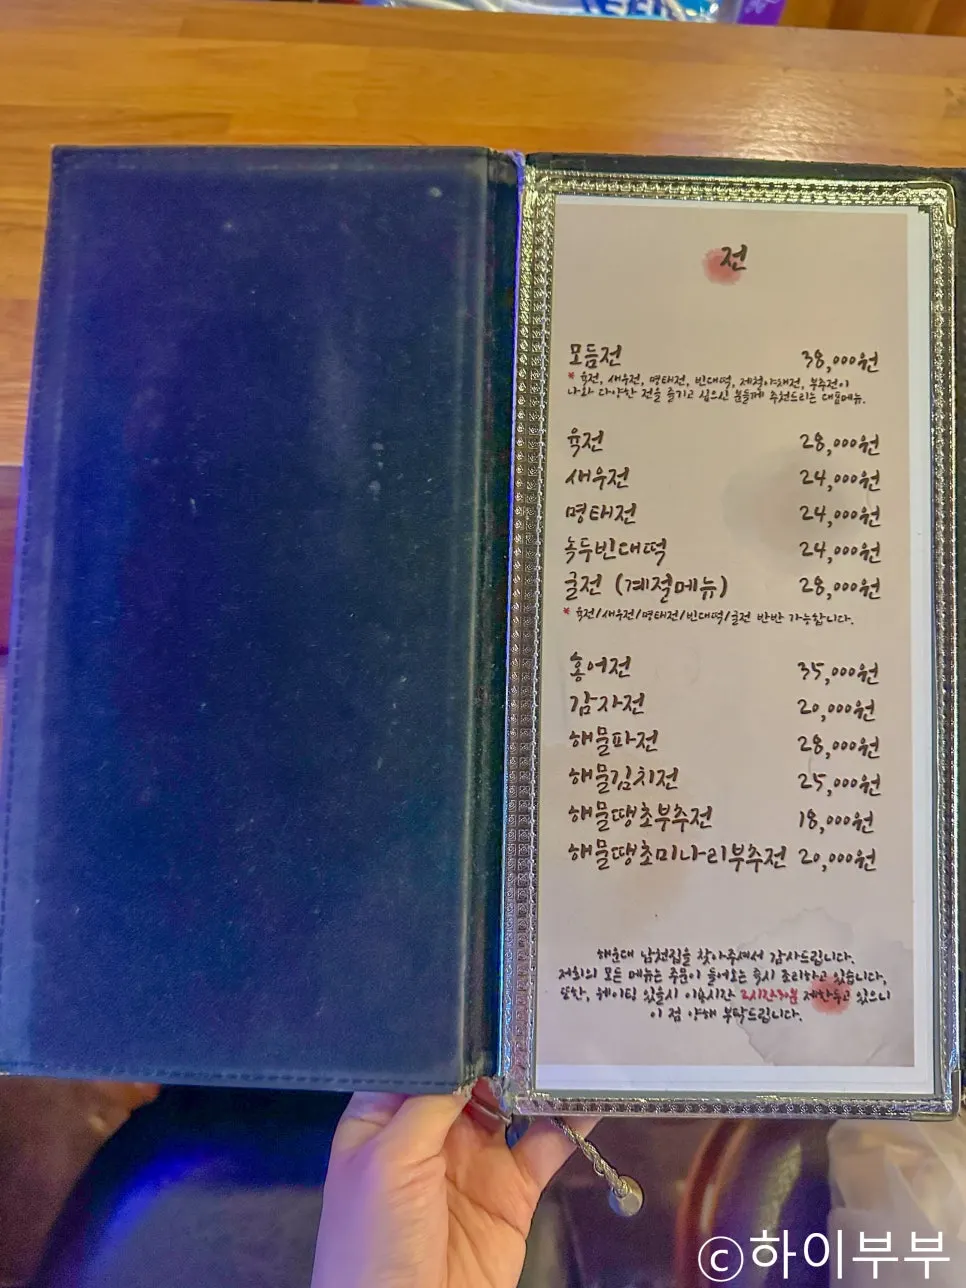 전
모듬전 38,000원
* 육전, 새우전, 명태전, 빈대떡, 제철야채전, 부추전이
나와 다양한 전을 즐기고 싶으신 분들께 추천드리는 대표메뉴.
육전 28,000원
새우전 24,000원
명태전 24,000원
녹두빈대떡 24,000원
굴전 (계절메뉴) 28,000원
* 육전/새우전/명태전/빈대떡/굴전 반반 가능합니다.
홍어전 35,000원
감자전 20,000원
해물파전 28,000원
해물김치전 25,000원
해물땡초부추전 18,000원
해물땡초미나리부추전 20,000원
해운대 남천집을 찾아주셔서 감사드립니다.
저희의 모든 메뉴는 주문이 들어오는 즉시 조리하고 있습니다,
또한, 웨이팅 있을시 이용시간 2시간30분 제한두고 있으니
이 점 양해 부탁드립니다.
©하이부부